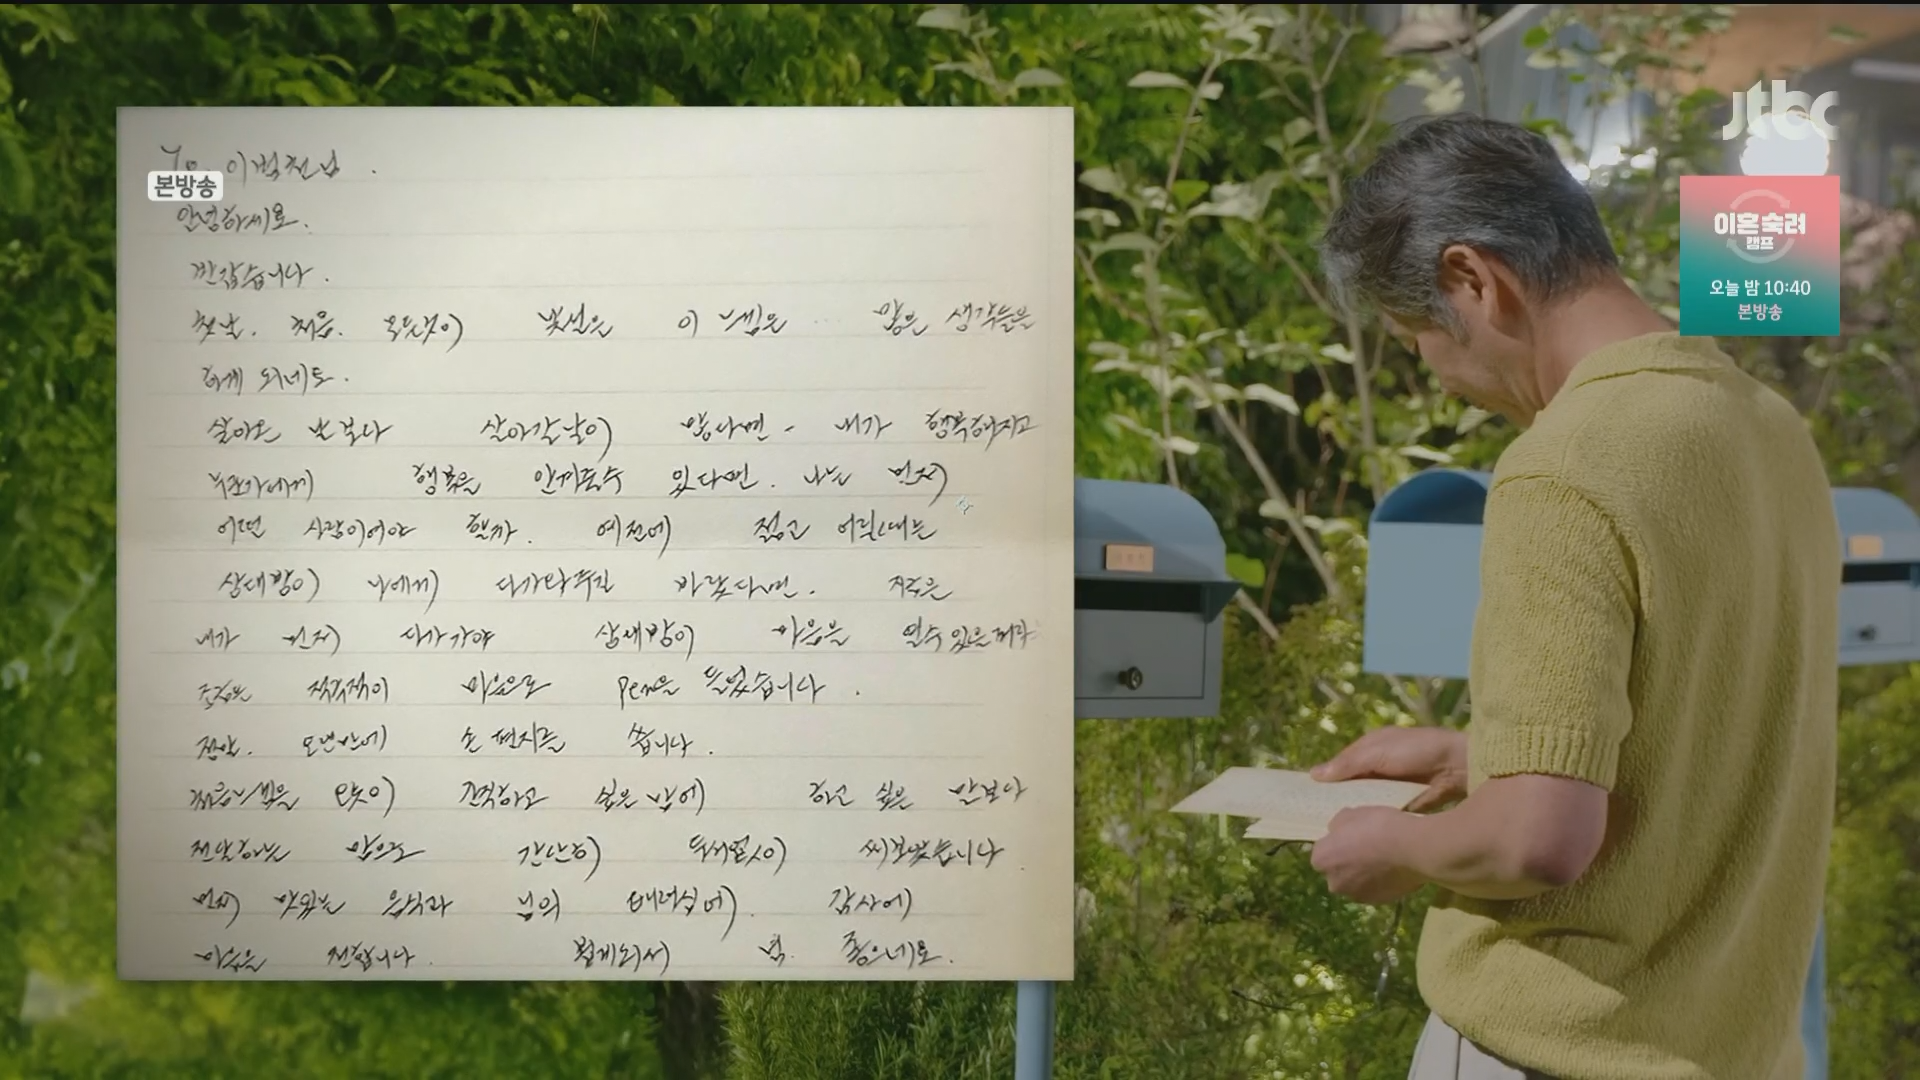 To 이범천님.
본방송
안녕하세요.
반갑습니다.
첫날. 처음. 모든것이 낯설은 이 느낌은 많은 생각들을
하게 되네요.
살아온 날보다 살아갈날이 많다면- 내가 행복해지고
누군가에게 행복을 안겨줄수 있다면. 나는 먼저
어떤 사람이어야 할까. 예전에 젊고 어릴때는
상대방이 나에게 다가와주길 바랬다면. 지금은
내가 먼저 다가가야 상대방이 마음을 열수있을꺼라
조금은 적극적이 마음으로 pen을 들었습니다.
정말. 오랜만에 손편지를 씁니다.
처음느낌을 많이 간직하고 싶은 밤에 하고 싶은 말보다
전달하는 맘으로 간단히 두서없이 써보았습니다
먼저 맛있는 음식과 님의 배려심에 감사에
마음을 전합니다. 뵙게되서 넘 좋으네요.
jtbc
이혼숙려
캠프
오늘 밤 10:40
본방송